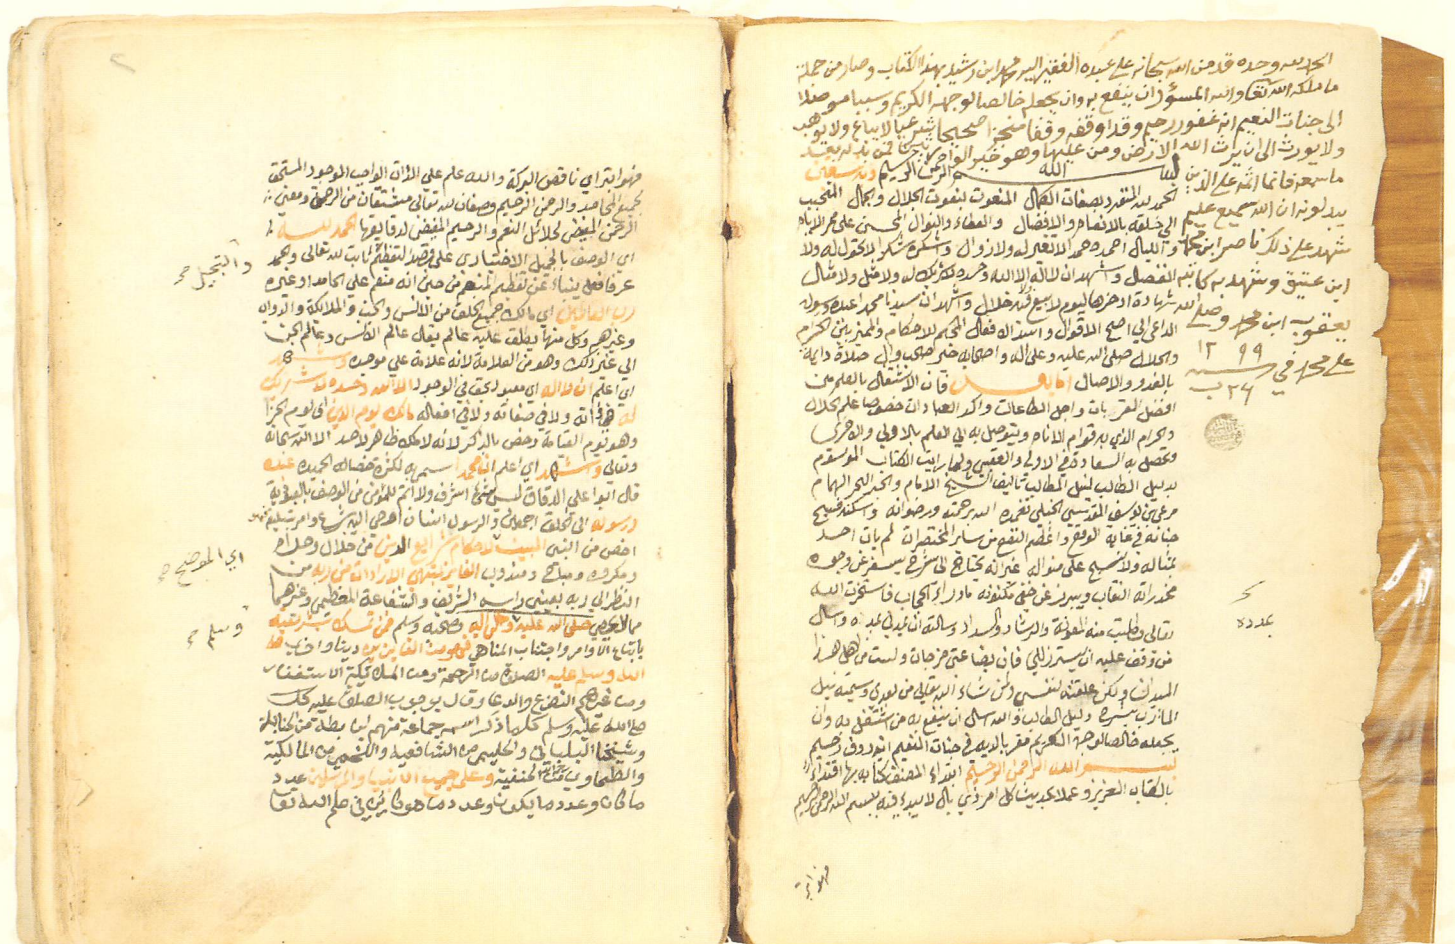 الحمد لله وحده قد من الله سبحانه على عبده الفقير اليه محمد ابن رشيد بهذا الكتاب وصار من جملة
ما ملكه الله تعا والله المسؤل ان ينفع به وان يجعله خالصا لوجهه الكريم وسببا موصلا
الى جنات النعيم انه غفور رحيم وقد اوقفه وقفا منجزا صحيحا شرعيا لا يباع ولا يوهب
ولا يورث الى ان يرث الله الارض ومن عليها وهو خير الوارثين فمن بدله بعد
ما سمعه فانما اثمه على الذين
يبدلونه ان الله سميع عليم
شهد على ذلك ناصر ابن محمد
ابن عتيق وشهد به كاتبه
يعقوب ابن محمد وصلى الله
على محمد في
١٢٩٩
سنة
٢٦ ب
بسم الله الرحمن الرحيم وبه نستعين
الحمد لله المتفرد بصفات الكمال المنعوت بنعوت الجلال والجمال المتحبب
الى خلقه بالانعام والافضال والعطاء والنوال المحسن على ممر الايام
والليال احمده حمدا لا تغير له ولا زوال واشكره شكرا لا تحول له ولا
انفصال واشهد ان لا اله الا الله وحده لا شريك له ولا مثل ولا مثال
شهادة ادخرها ليوم لا بيع فيه ولا خلال واشهد ان سيدنا محمدا عبده ورسوله
الداعي الى اصح الاقوال واسد الافعال المحكم للاحكام والمميز بين الحرام
والحلال صلى الله عليه وعلى اله واصحابه خير صحب وال صلاة دايمة
بالغدو والاصال اما بعد فان الاشتغال بالعلم من
افضل القربات واجل الطاعات واكد العبادات خصوصا علم الحلال
والحرام الذي به قوام الانام ويتوصل به الى العلم بالاولى والاخرى
وتحصل به السعادة في الاولى والعقبى ولما رايت الكتاب الموسوم
بدليل الطالب لنيل المطالب تاليف الشيخ الامام والحبر البحر الهمام
مرعي بن يوسف المقدسي الحنبلي تغمده الله برحمته ورضوانه واسكنه فسيح
جنانه في غاية الوقع واعظم النفع من ساير المختصرات لم يات احد
بمثاله ولا نسج على منواله غير انه يحتاج الى شرح يسفر عن وجوه
مخدراته النقاب ويبرز عن خفي مكنونه ما وراء الحجاب فاستخرت الله
تعالى وطلبت منه المعونة والرشاد والسداد وسالته ان يمدني بمدده واسال
من وقف عليه ان يستر زللي فان بضاعتي مزجات ولست من اهل هذا
الميدان ولكن علقته لنفسي ولمن شاء الله تعالى من بعدي وسميته نيل
المآرب بشرح دليل الطالب والله اسال ان ينفع به من اشتغل به وان
يجعله خالصا لوجهه الكريم مقربا لديه في جنات النعيم انه رؤوف رحيم
بسم الله الرحمن الرحيم ابتداء المصنف كتابه بها اقتداء
بالكتاب العزيز وعملا بحديث كل امر ذي بال لا يبدء فيه ببسم الله الرحمن الرحيم
فهو ابتر
بمدده
فهو ابتر اي ناقص البركة والله علم على الذات الواجب الوجود المستحق
لجميع المحامد والرحمن الرحيم وصفان لله تعالى مشتقان من الرحمة ومعنى
الرحمن المفيض لجلائل النعم والرحيم المفيض لدقايقها الحمد لله
اي الوصف بالجميل الاختياري على قصد التعظيم ثابت لله تعالى والحمد
عرفا فعل ينبئ عن تعظيم المنعم من حيث انه منعم على الحامد او غيره
رب العالمين اي مالك جميع الخلق من الانس والجن والملائكة والدواب
وغيرهم وكل منها يطلق عليه عالم يقال عالم الانس وعالم الجن
الى غير ذلك وهو من العلامة لانه علامة على موجده واشهد
اي اعلم ان لا اله اي معبود بحق في الوجود الا الله وحده لا شريك
له في ذاته ولا في صفاته ولا في افعاله مالك يوم الدين اي يوم الجزا
وهو يوم القيامة وخص بالذكر لانه لا ملك ظاهر لاحد الا الله سبحانه
وتعالى واشهد اي اعلم ان محمدا سمي به لكثرة خصاله الحميدة عبده
قال ابو علي الدقاق ليس شيء اشرف ولا اتم للمؤمن من الوصف بالعبودية
ورسوله الى الخلق اجمعين والرسول انسان اوحي اليه بشرع وامر بتبليغه
اخص من النبي المبين لاحكام شرايع الدين من حلال وحرام
ومكروه ومباح ومندوب الفائز بمنتهى الارادات من ربه من
النظر الى ربه بعيني راسه الشريف والشفاعة العظمى وغيرهما
مما لا يحصى صلى الله عليه وعلى اله وصحبه وسلم فمن تمسك بشريعته
باتباع الاوامر واجتناب المناهي فهو من الفائزين دينا واخرى صلى
الله وسلم عليه الصلاة من الله الرحمة ومن الملائكة الاستغفار
ومن غيرهم التضرع والدعا وقال بوجوب الصلاة عليه كلما
صلى الله عليه وسلم كلما ذكر اسمه جماعة منهم ابن بطة من الحنابلة
وشيخنا البلباني والحليمي من الشافعية واللخمي من المالكية
والطحاوي من الحنفية وعلى جميع الانبيا والمرسلين عدد
ما كان وعدد ما يكون وعدد ما هو كاين في علم الله تعا
والتبجيل صح
اي الموضح صح
وسلم صح